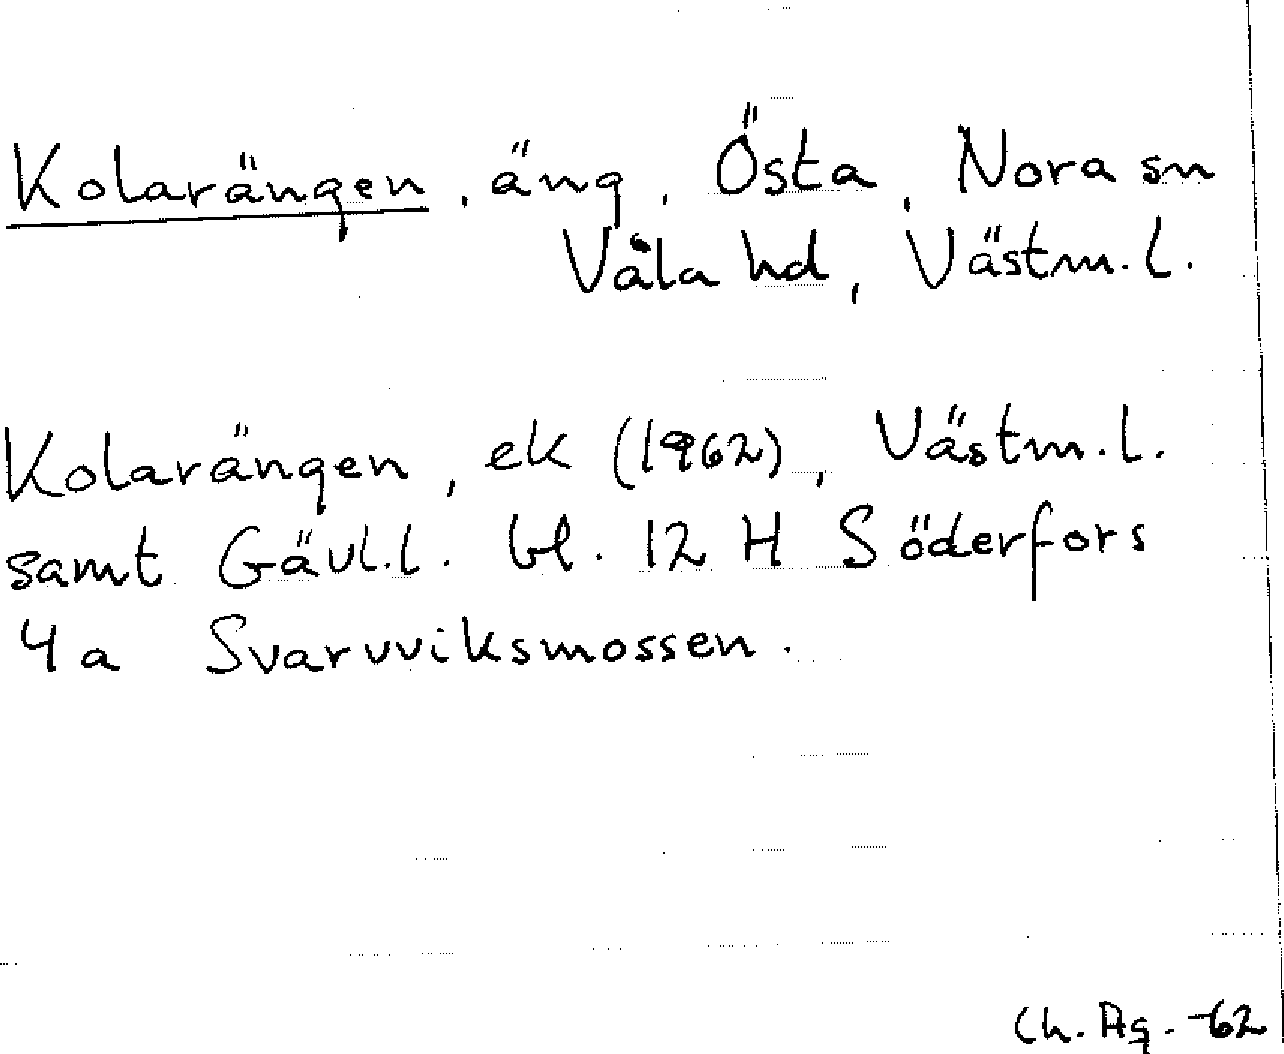 Kolarängen, äng, Östa, Nora sn
Våla hd, Västm. l.
Kolarängen, ek (1962), Västm. l.
samt Gävl. l. bl. 12 H Söderfors
4 a Svarvviksmossen.
Ch. Ag. -62